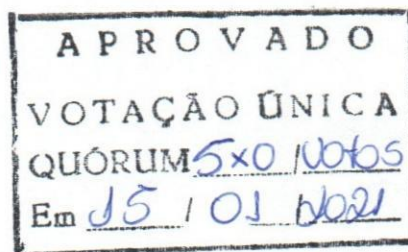 APROVADO
VOTAÇÃO ÚNICA
QUÓRUM 5x0 / Votos
Em 15 / 01 / 2021